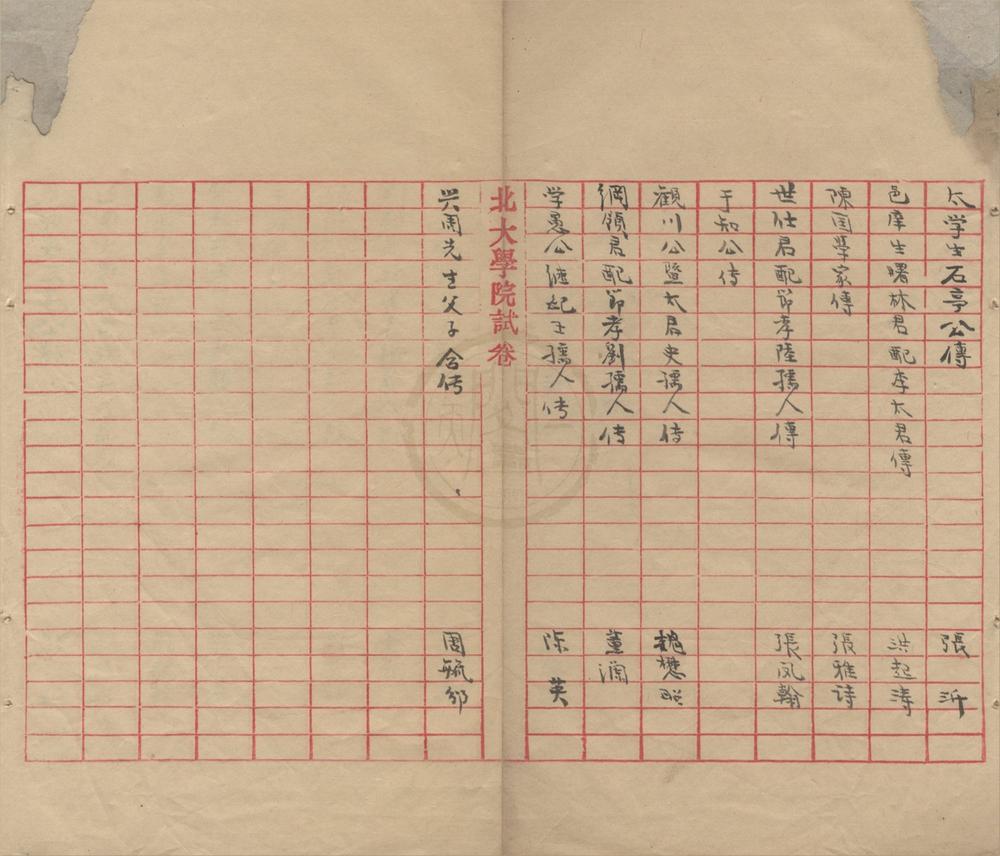 太学生石亭公傳 張 沂
邑庠生曙林君配李太君傳 洪起濤
陳國學家傳 張雅詩
世仕君配節孝陸孺人傳 張凤翰
于知公传
觀川公暨太君史孺人传 魏懋
綱領君配節孝劉孺人传 董澜
学愚公继妃王孺人传 陈 英
北大學院試卷
兴周先生父子合传 周毓邠